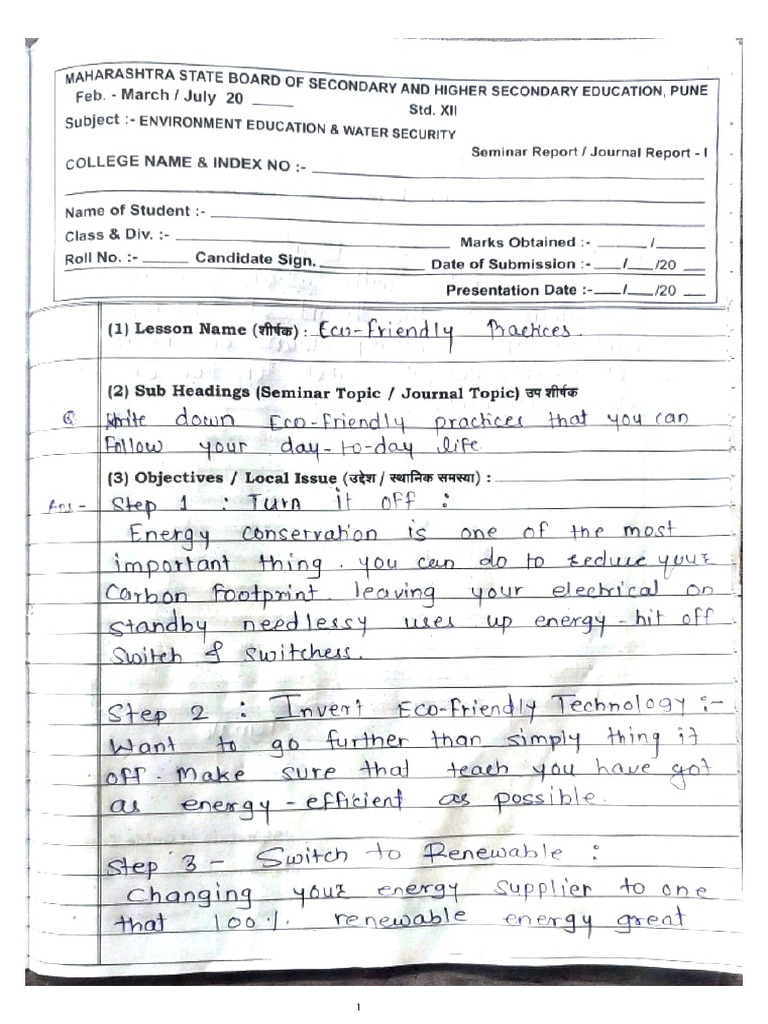 MAHARASHTRA STATE BOARD OF SECONDARY AND HIGHER SECONDARY EDUCATION, PUNE
Feb. - March / July 20 ____
Std. XII
Subject :- ENVIRONMENT EDUCATION & WATER SECURITY
Seminar Report / Journal Report - I
COLLEGE NAME & INDEX NO :-
Name of Student :-
Class & Div. :-
Marks Obtained :- ____/____
Roll No. :- ____ Candidate Sign. ____ Date of Submission :- __/__/20 __
Presentation Date :- __/__/20 __
(1) Lesson Name (शीर्षक) : Eco-friendly Practices.
(2) Sub Headings (Seminar Topic / Journal Topic) उप शीर्षक
Q Write down Eco-friendly practices that you can
Follow your day-to-day life
(3) Objectives / Local Issue (उद्देश / स्थानिक समस्या) :
Ans - Step 1 : Turn it off :
Energy conservation is one of the most
important thing. you can do to reduce your
Carbon footprint. leaving your electrical on
standby needlessy uses up energy - hit off
Switch & switchess.
Step 2 : Invert Eco-friendly Technology :-
Want to go further than simply thing it
off. Make sure that teach you have got
as energy - efficient as possible.
Step 3 - Switch to Renewable :
Changing your energy supplier to one
that 100% renewable energy great
1